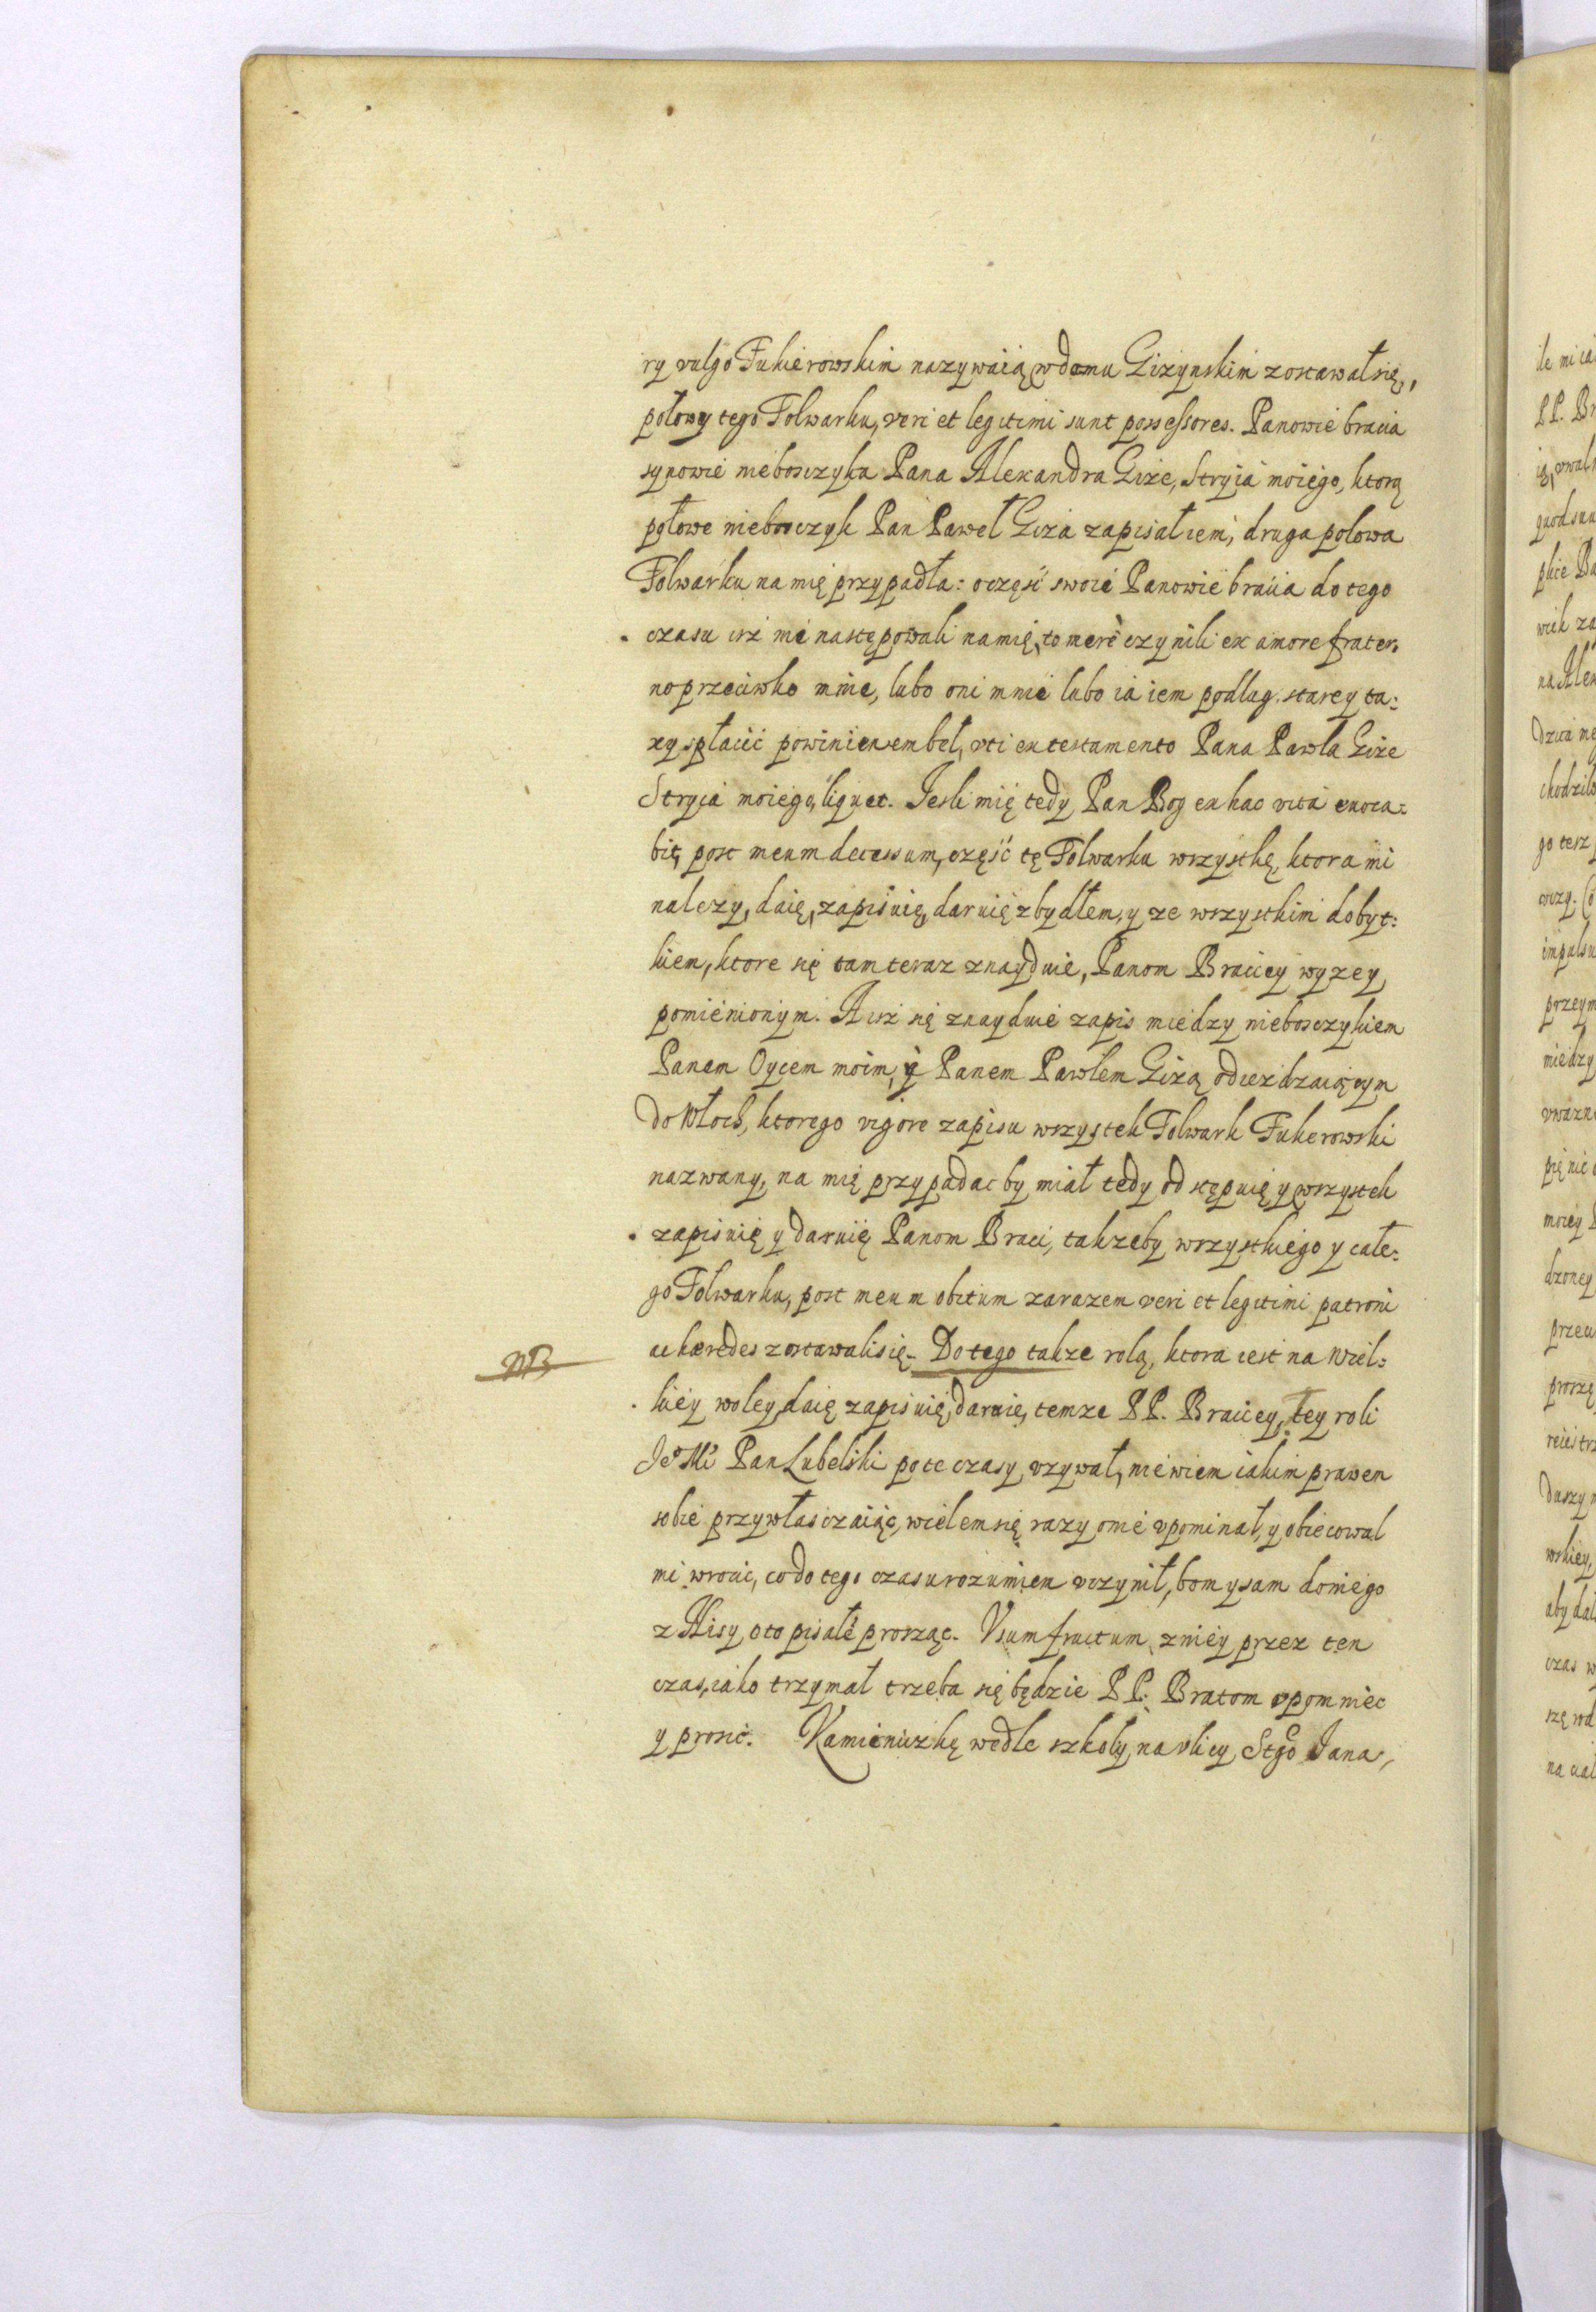 ry vulgo Fukierowskim nazywaią w domu Giżynskim zostawał się,
połowy tego Folwarku, veri et legitimi sunt possessores. Panowie bracia
synowie nieboszczyka Pana Alexandra Giże, Stryia moiego, ktorą
połowe nieboszczyk Pan Paweł Giża zapisał iem, druga polowa
Folwarku na mię przypadła: o część swoię Panowie bracia do tego
czasu isz nie następowali na mię, to merè czynili ex amore frater,
no przeciwko mnie, lubo oni mnie lubo ia iem podlug starey ta:
xy spłacić powinienem beł, vti ex testamento Pana Pawla Giże
Stryia moiego, liquet. Iesli mię tedy Pan Bog ex hac vita evoca:
bit, post meum decessum, część tę Folwarku wszystkę, ktora mi
nalezy, daię, zapisuię, daruię z bydłem, y ze wszystkim dobyt:
kiem, ktore się tam teraz znayduie, Panom Braciey wyzey
pomienionym. A isz się znayduie zapis miedzy nieboszczykiem
Panem Oycem moim, y Panem Pawlem Giżą odiezdzaiącym
do Włoch, ktorego vigore zapisu wszystek Folwark Fukerowski
nazwany, na mię przypadac by miał tedy odstępuię y wszystek
zapisuię y daruię Panom Braci, tak zeby wszystkiego y całe:
go Folwarku, post meum obitum zarazem veri et legitimi patroni
ac hæredes zostawali się. Do tego takze rolą, ktora iest na Wiel:
NB
kiey woley, daię zapisuię, daruię, temze PP. Braciey, tey roli
Je° Mć Pan Lubelski po te czasy vzywał, nie wiem iakim prawem
sobie przywłasczaiąc, wielem się razy o nie vpominał, y obiecowal
mi wrocic, co do tego czasu rozumiem vczynił, bom y sam do niego
z Nisy o to pisałe prosząc. Vsum fructum z niey przez ten
czas, iako trzymał trzeba się będzie PP. Bratom vpomniec
y prosic. Kamieniczkę wedle szkoly, na vlicy Stgo Jana,